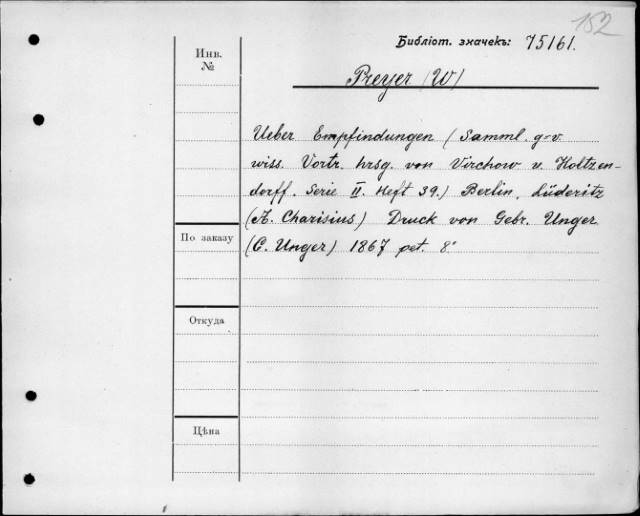 152
Библіот. значекъ: 75161.
Инв.
№
Preyer (W)
Ueber Empfindungen (Samml. g-v.
wiss. Vortr. hrsg. von Virchow v. Holtzen-
dorff. Serie II. Heft 39.) Berlin, Lüderitz
(A. Charisius) Druck von Gebr. Unger
(C. Unger) 1867 pet. 8°
По заказу
Откуда
Цѣна